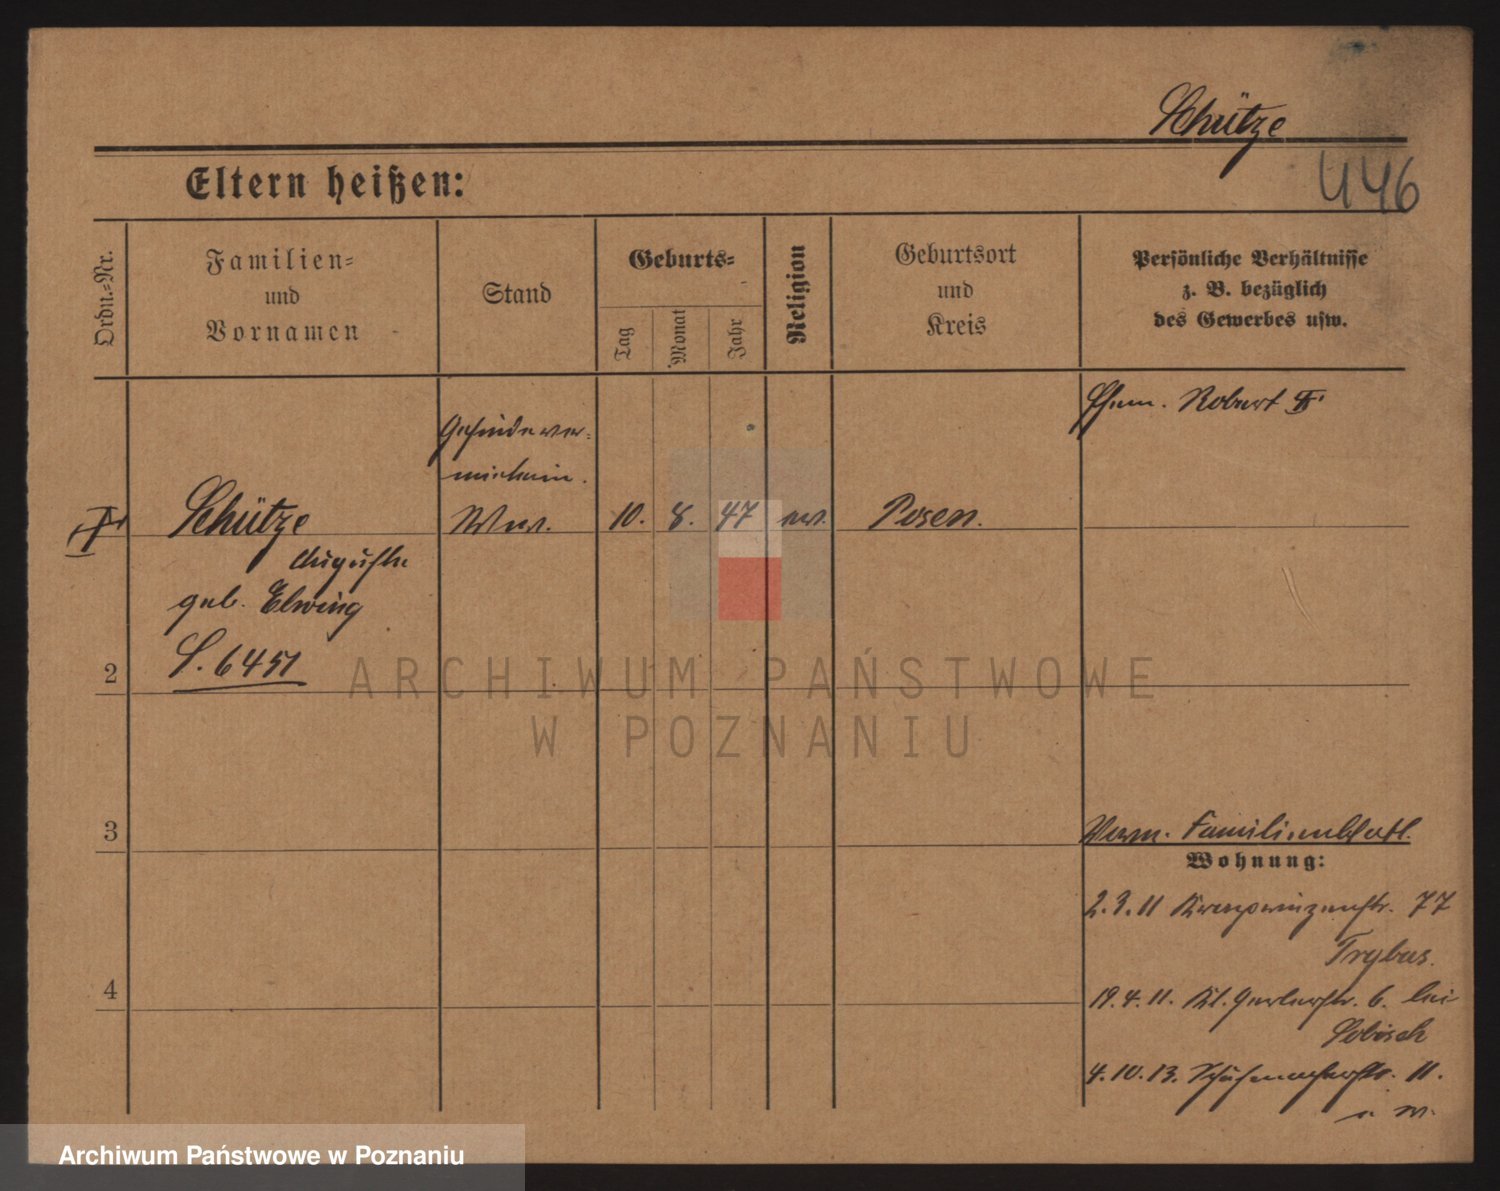 Schütze
446
Eltern heißen:
Ordn.=Nr.
Familien=
und
Vornamen
Stand
Geburts=
Tag
Monat
Jahr
Religion
Geburtsort
und
Kreis
Persönliche Verhältnisse
z. B. bezüglich
des Gewerbes usw.
Ehem. Robert II
Gesindever=
mieterin.
Schütze
Wwe.
10. 8. 47 ev. Posen.
Auguste
geb. Elwing
S. 6451
2
3
4
Verm. Familienblatt.
Wohnung:
2.3.11 Kronprinzenstr. 77
Trybus.
19.4.11. Kl. Gerberstr. 6. bei
Sobisch
4.10.13. Schuhmacherstr. 11.
ARCHIWUM PAŃSTWOWE
W POZNANIU
Archiwum Państwowe w Poznaniu